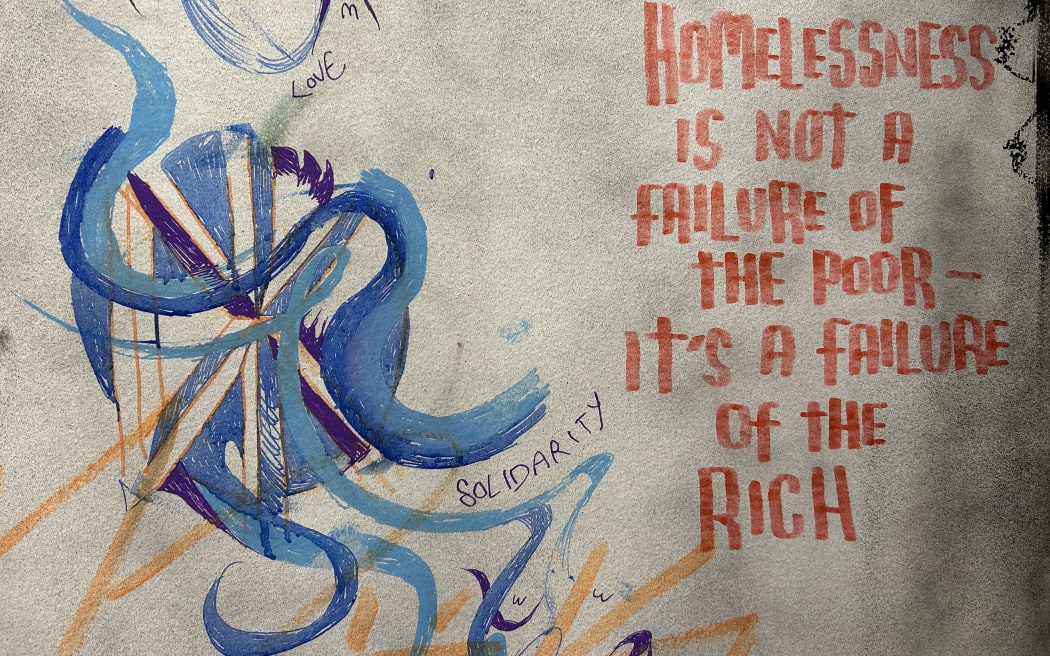 LOVE
HOMELESSNESS
IS NOT A
FAILURE OF
THE POOR -
IT'S A FAILURE
OF THE
RICH
SOLIDARITY